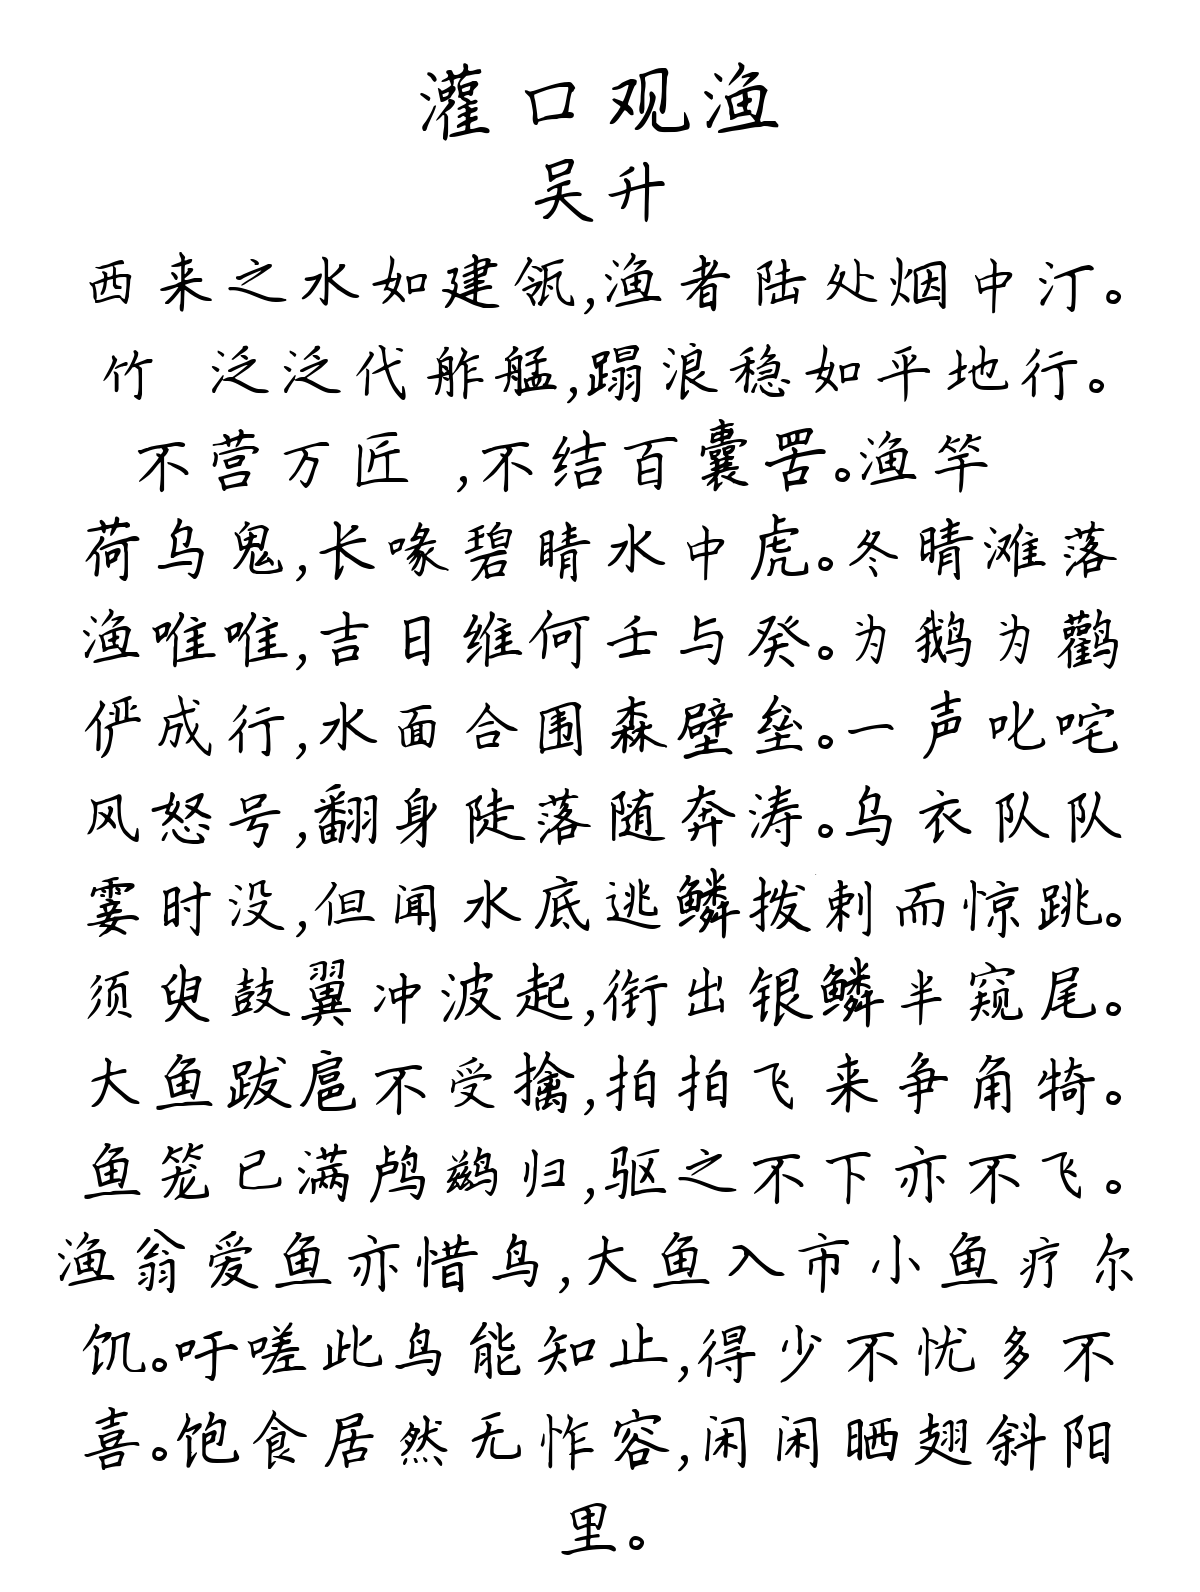 灌口观渔
吴升
西来之水如建瓴,渔者陆处烟中汀。
竹 泛泛代舴艋,蹋浪稳如平地行。
不营万匠 ,不结百囊罟。渔竿
荷乌鬼,长喙碧睛水中虎。冬晴滩落
渔唯唯,吉日维何壬与癸。为鹅为鹳
俨成行,水面合围森壁垒。一声叱咤
风怒号,翻身陡落随奔涛。乌衣队队
霎时没,但闻水底逃鳞拨剌而惊跳。
须臾鼓翼冲波起,衔出银鳞半窥尾。
大鱼跋扈不受擒,拍拍飞来争角犄。
鱼笼已满鸬鹚归,驱之不下亦不飞。
渔翁爱鱼亦惜鸟,大鱼入市小鱼疗尔
饥。吁嗟此鸟能知止,得少不忧多不
喜。饱食居然无怍容,闲闲晒翅斜阳
里。